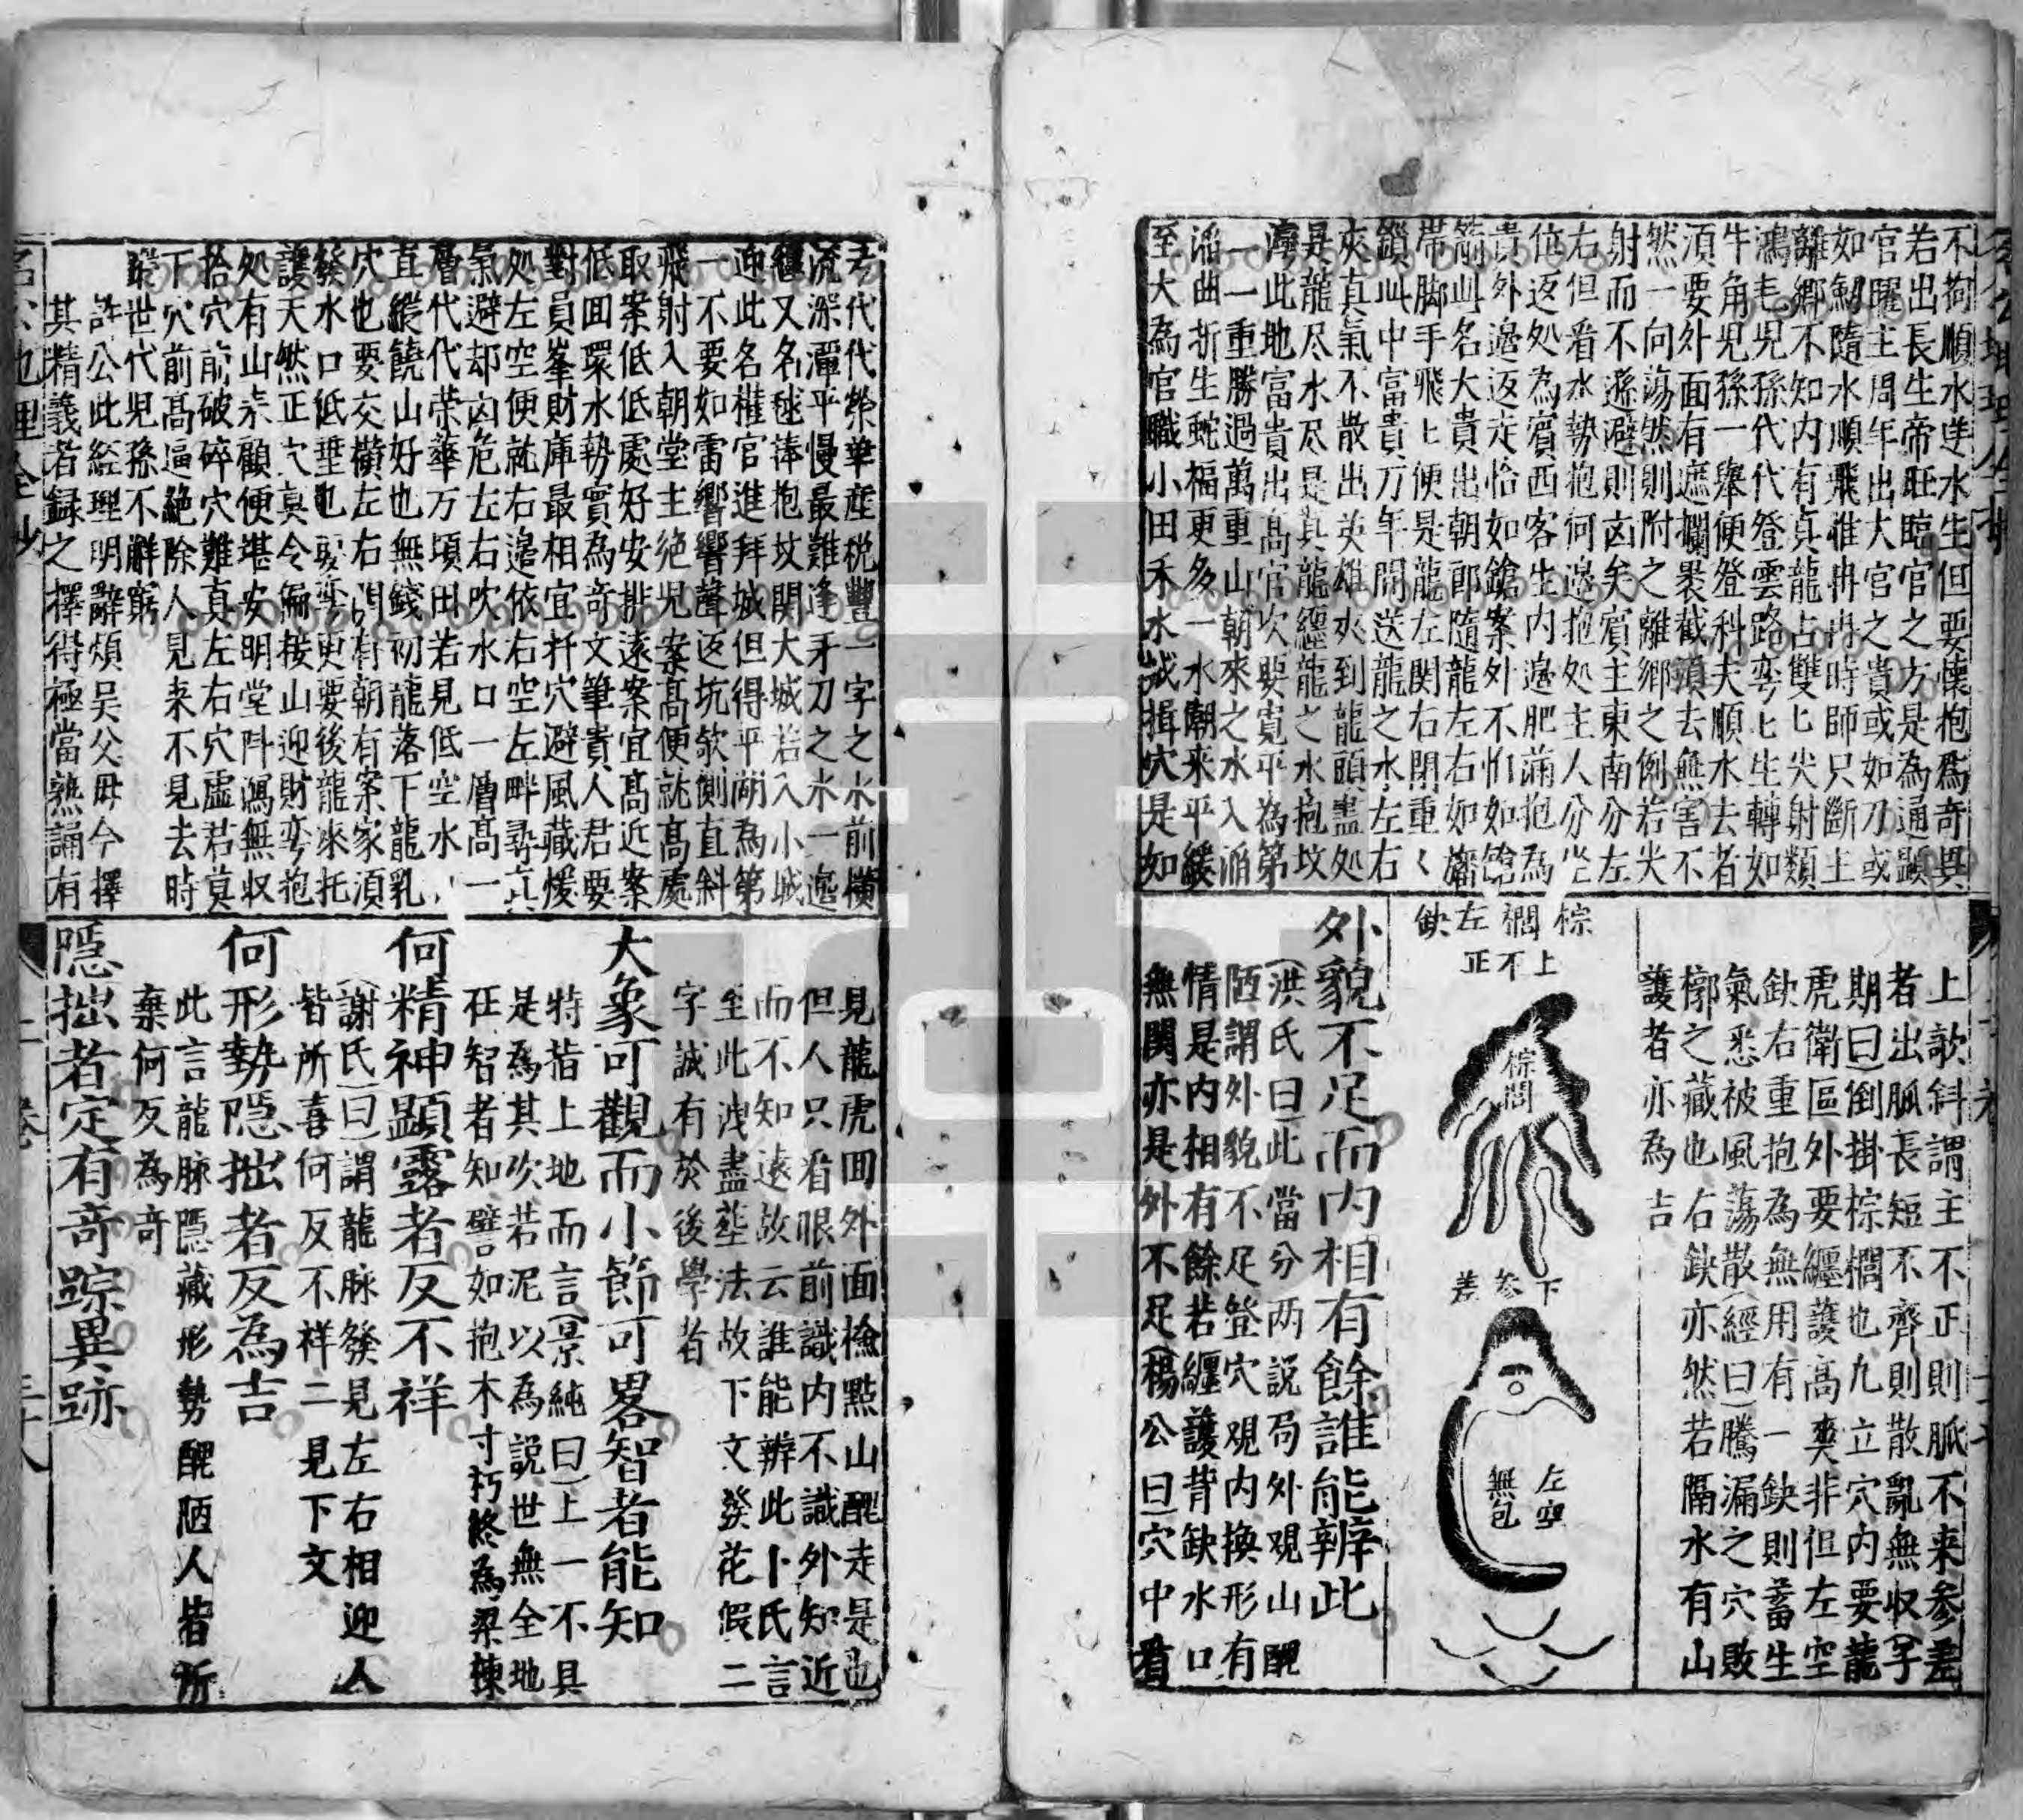 不拘順水逆水生但要懷抱為奇異
若出長生帝旺臨官之方是為通顯
官曜主周年出大官之貴或如刀或
如劍隨水順飛雅冉冉時師只斷土
離鄉不知內有真龍占雙匕尖射類
鴻毛兒孫代代登雲路弯匕生轉如
牛角兒孫一舉便登科夫順水去者
須要外面有遮攔裴截須去無害不
然一向蕩然則附之離鄉之例若尖
射而不遜避則凶矣賓主東南分左
右但看水勢抱何邊抱処主人分坐
位返処為賓西客生內邊肥滿抱為
貴外邊返走恰如鎗案外不怕如鎗
箭山名大貴出朝郎隨龍左右如
帶脚手飛匕便是龍左関右閉重〱
鎖山中富貴万年間送龍之水左右
夾真氣不散出英雄夾到龍頭盡処
是龍尽水尽是真龍纏龍之水抱坟
灣此地富貴出高官坎要寬平為第
一一重勝過萬重山朝來之水入滔
滔曲折生蛇福更多一水朝来平緩
至大為官職小田禾水城揖穴是如
上歌斜謂主不正則脈不来参差
者出脈長短不齊則散亂無収子
期曰倒掛棕櫚也九立穴內要龍
虎衛區外要纏護高爽非但左空
缺右重抱為無用有一缺則蓄生
氣悉被風蕩散經曰騰漏之穴敗
槨之藏也右缺亦然若隔水有山
護者亦為吉
棕櫚左缺
上不正
棕櫚
下参差
左空
無包
外貌不足而內相有餘誰能辨此
洪氏曰此當分两説局外观山醜
陋謂外貌不足登穴观內換形有
情是內相有餘若纏護背缺水口
無関亦是外不足楊公曰穴中看
代代榮華産税豐一字之水前橫
流深潭平慢最難逢矛刀之水一邊
纏又名毬捧抱坟関大城若入小城
迎此名權官進拜城但得平湖為第
一不要如雷響響聲返坑欹側直斜
飛射入朝堂主绝兒案高便就高處
取案低低處好安排遠案宜高近案
低回環水勢實為奇文筆貴人君要
對員峯財庫最相宜扦穴避風藏煖
処左空便就右邊依右空左畔尋真
氣避却凶危左右吹水口一層高一
層代代荣華万頃田若見低空水
直縱饒山好也無錢初龍落下龍乳
穴也要交橫左右関有朝有案家須
發水口低垂也要弯更要後龍來托
護天然正穴真令偏接山迎財弯抱
処有山来顧便堪安明堂斜瀉無収
拾穴前破碎穴難真左右穴虛君莫
下穴前高逼絶除人見来不見去時
聯世代兒孫不觧窮
許公此經理明辭煩吴父毋今擇
其精義者録之擇得極當熟誦有
見龍虎回外面檢點山醜走是也
但人只看眼前識內不識外知近
而不知遠故云誰能辨此卜氏言
至此洩盡塟法故下文發花假二
字誠有於後學者
大象可觀而小節可畧智者能知
特㫖上地而言景純曰上一不具
是為其次若泥以為説世無全地
在智者知譬如抱木寸朽終為梁棟
何精神顯露者反不祥
謝氏曰謂龍脉發見左右相迎人
皆所喜何反不祥二見下文
何形勢隠拙者反為吉
此言龍脉隠藏形勢醜陋人皆所
棄何反為奇
隠拙者定有奇踪異跡